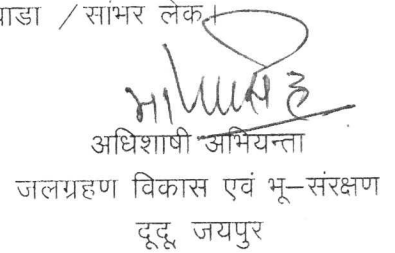 / सांभर लेक।
अधिशाषी अभियन्ता
जलग्रहण विकास एवं भू–संरक्षण
दूदू, जयपुर